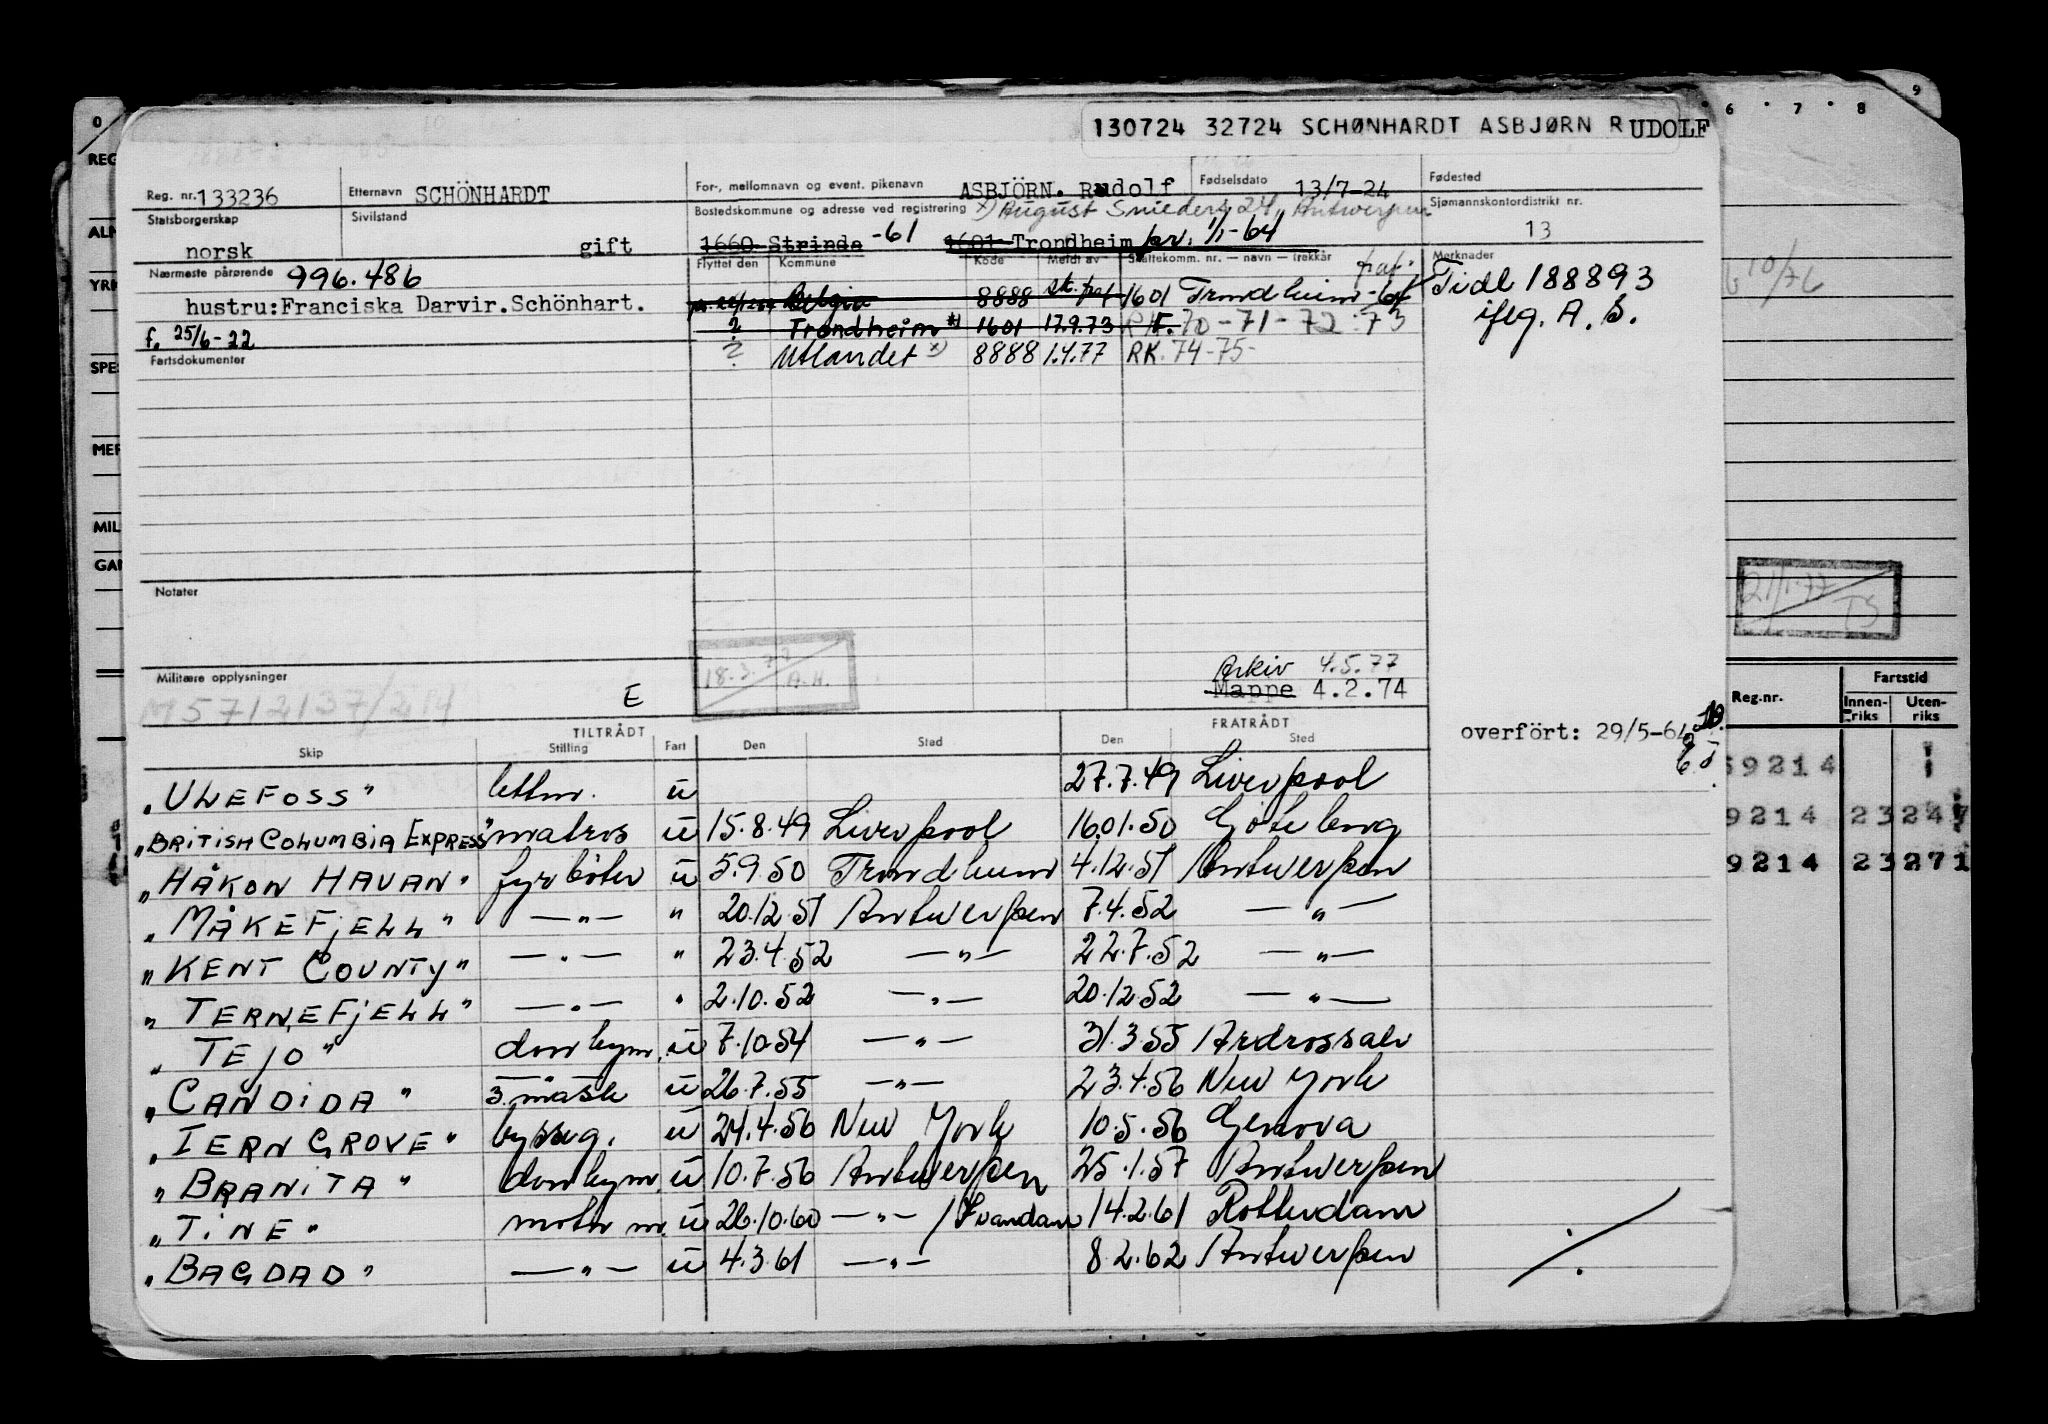 130724 32724 SCHØNHARDT ASBJØRN RUDOLF
Reg. nr. 133236 Etternavn SCHÖNHARDT For-, mellomnavn og event. pikenavn ASBJÖRN. Rudolf Fødselsdato 13/7-24 Fødested
Statsborgerskap norsk Sivilstand gift Bostedskommune og adresse ved registrering x) August Snieders 24, Antwerpen Sjømannskontordistrikt nr. 13
1660 Strinda -61 1601 Trondheim pr. 1/1-64
Nærmeste pårørende 996.486 Flyttet den Kommune Kode Meldt av Skattekomm. nr. — navn — trekkår Merknader
hustru: Franciska Darvir. Schönhart. Belgia 8888 1601 Trondheim -64 Tidl 188893
f. 25/6-22 ? Trondheim x) 1601 17.9.73 70-71-72-73 iflg. A. S.
Fartsdokumenter ? Utlandet x) 8888 1.4.77 RK. 74-75-
Notater
18.3.77 A.H.
Militære opplysninger Arkiv 4.5.77
M5712137/214 E Mappe 4.2.74
TILTRÅDT FRATRÅDT overfört: 29/5-64
Skip Stilling Fart Den Sted Den Sted
"ULEFOSS" lettm. u 27.7.49 Liverpool
"BRITISH COLUMBIA EXPRESS" matros u 15.8.49 Liverpool 16.01.50 Göteborg
"HÅKON HAVAN" fyrböter u 5.9.50 Trondheim 4.12.51 Antwerpen
"MÅKEFJELL" — " — " 20.12.51 Antwerpen 7.4.52 — " —
"KENT COUNTY" — " — " 23.4.52 — " — 22.7.52 — " —
"TERNEFJELL" — " — " 2.10.52 — " — 20.12.52 — " —
"TEJO" donkym. u 7.10.54 — " — 31.3.55 Ardrossan
"CANDIDA" 3. mask u 26.7.55 — " — 23.4.56 New York
"FERNGROVE" bysseg. u 24.4.56 New York 10.5.56 Genova
"BRANITA" donkym. u 10.7.56 Antwerpen 25.1.57 Antwerpen
"TINE" motor m. u 26.10.60 — " — 14.2.61 Rotterdam
"BAGDAD" — " — u 4.3.61 — " — 8.2.62 Antwerpen
0
REG
ALM
YRK
SPES
MER
MIL
GAN
6 7 8 9
10/76
21/1-77 TS
Reg.nr. Fartstid
Innen-riks Uten-riks
59214 1
9214 23 247
9214 23 271